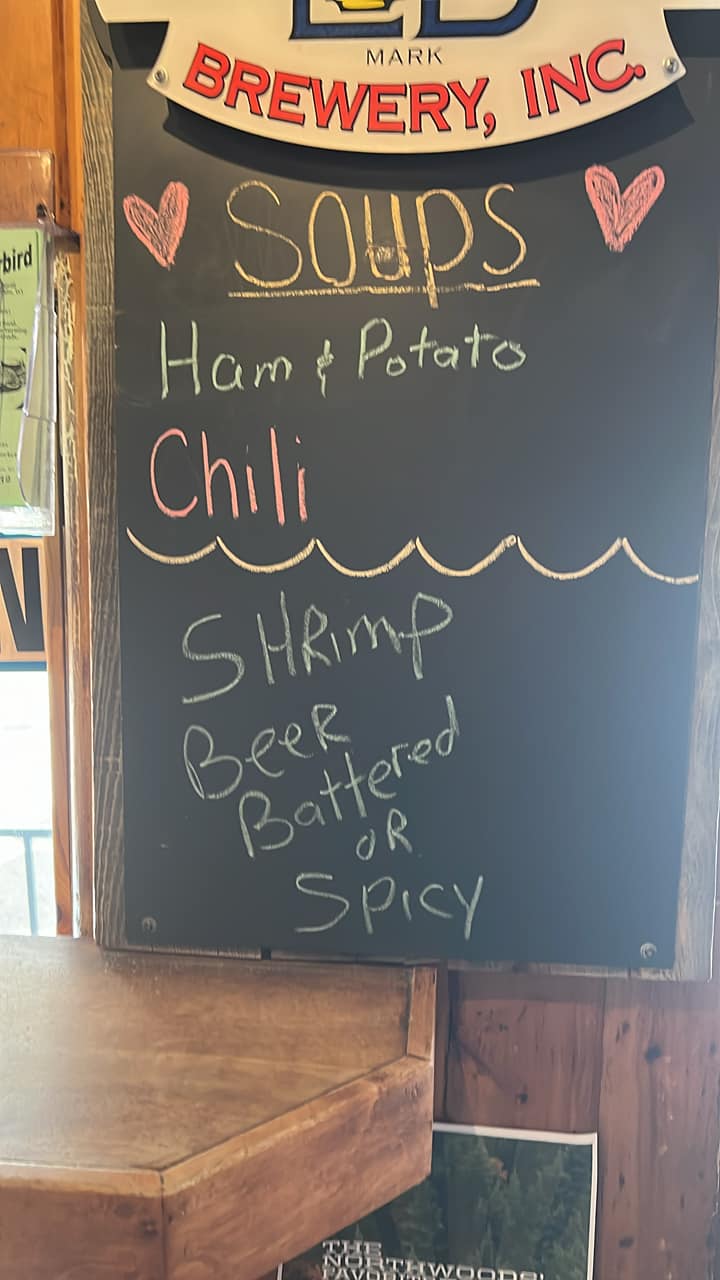 MARK
BREWERY, INC.
SOUPS
Ham & Potato
Chili
SHRimp
BeeR
Battered
oR
SPicy
bird
THE
NORTHWOODS'